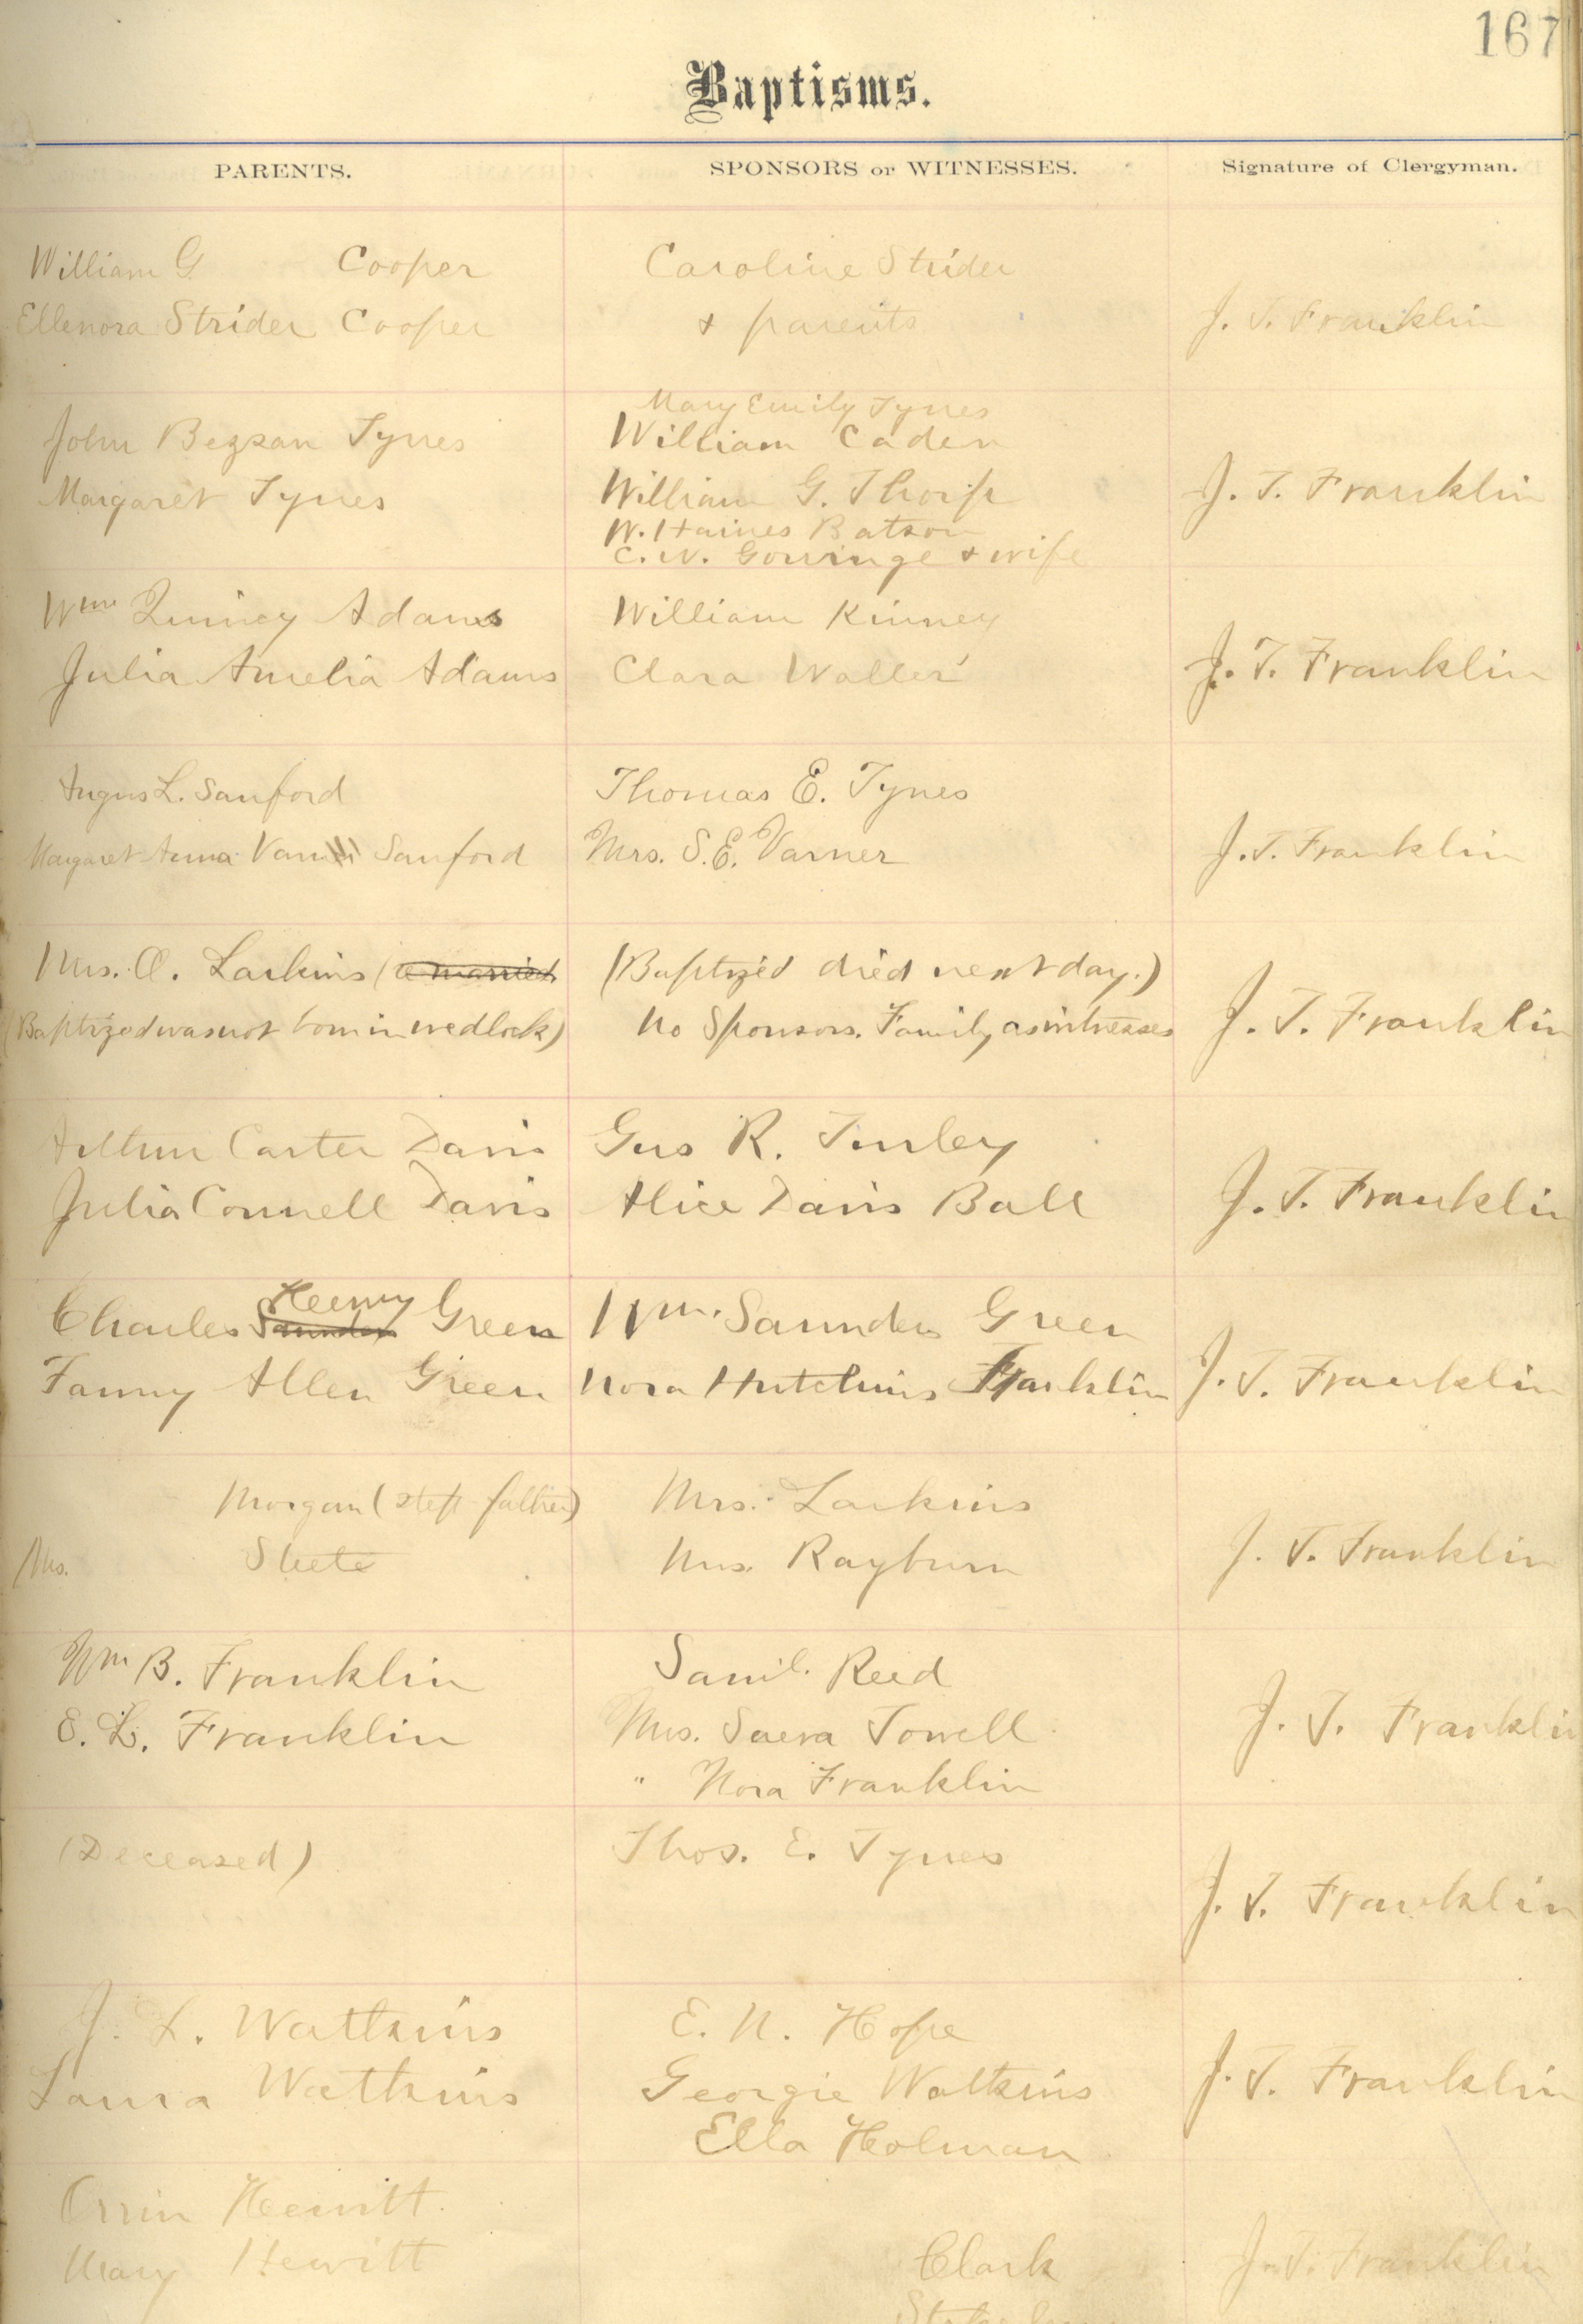 167
Baptisms.
PARENTS. SPONSORS or WITNESSES. Signature of Clergyman.
William G. Cooper Caroline Strider
Ellenora Strider Cooper & parents J. T. Franklin
Mary Emily Tynes
John Tynes William Caden
Margaret Tynes William G. Thorp J. T. Franklin
W. Haines Batson
C. W. & wife
Wm Quincy Adams William Kinney
Julia Amelia Adams Clara Waller J. T. Franklin
Angus L. Sanford Thomas E. Tynes
Margaret Anna Sanford Mrs. S. E. Varner J. T. Franklin
Mrs. A. Larkins (a married (Baptized died next day.)
(Baptized was not born in wedlock) No Sponsors. Family as witnesses J. T. Franklin
Arthur Carter Davis Gus R. Tinley
Julia Connell Davis Alice Davis Ball J. T. Franklin
Henry
Charles Saunders Green Wm. Saunders Green
Fanny Allen Green Nora Hutchins Franklin J. T. Franklin
Morgan (step father) Mrs. Larkins
Mrs. Mrs. Rayburn J. T. Franklin
Wm B. Franklin Saml. Reed
E. L. Franklin Mrs. Towell J. T. Franklin
" Nora Franklin
(Deceased) Thos. E. Tynes
J. T. Franklin
J. L. Watkins E. N. Hope
Laura Watkins Georgie Watkins J. T. Franklin
Ella Holman
Orrin Hewitt
Mary Hewitt Clark J. T. Franklin